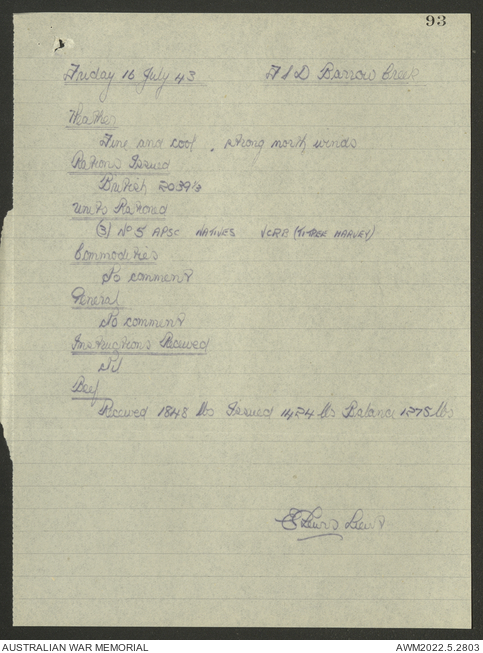 93
Friday 16 July 43 FSD Barrow Creek
Weather
Fine and cool. strong north winds
Rations Issued
British 2039⅓
Units Rationed
(3) No 5 APSC NATIVES VCRB (TI-TREE HARVEY)
Commodities
No comment
General
No comment
Instructions Received
Nil
Beef
Received 1848 lbs Issued 1424 lbs Balance 1275 lbs
Lewis Lieut
AUSTRALIAN WAR MEMORIAL AWM2022.5.2803